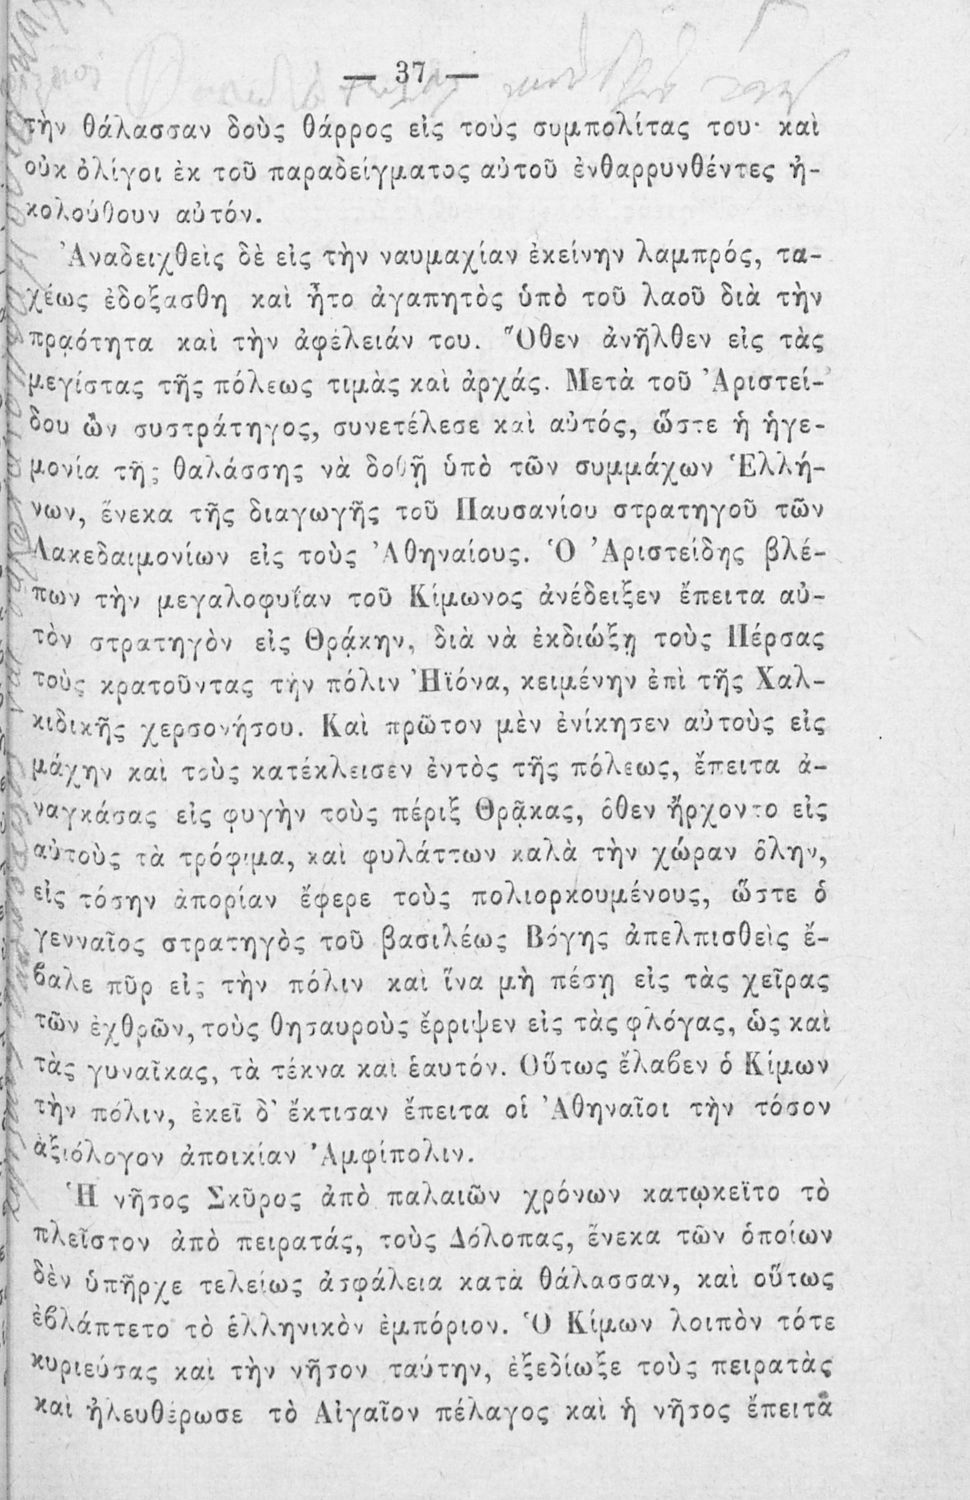 — 37 —
τὴν θάλασσαν δοὺς θάρρος εἰς τοὺς συμπολίτας του· καὶ
οὐκ ὀλίγοι ἐκ τοῦ παραδείγματος αὐτοῦ ἐνθαρρυνθέντες ἠ-
κολούθουν αὐτόν.
Ἀναδειχθεὶς δὲ εἰς τὴν ναυμαχίαν ἐκείνην λαμπρός, τα-
χέως ἐδοξασθη καὶ ἦτο ἀγαπητὸς ὑπὸ τοῦ λαοῦ διὰ τὴν
πραότητα καὶ τὴν ἀφέλειάν του. Ὅθεν ἀνῆλθεν εἰς τὰς
μεγίστας τῆς πόλεως τιμὰς καὶ ἀρχάς. Μετὰ τοῦ Ἀριστεί-
δου ὢν συστράτηγος, συνετέλεσε καὶ αὐτός, ὥστε ἡ ἡγε-
μονία τῆς θαλάσσης νὰ δοθῇ ὑπὸ τῶν συμμάχων Ἑλλή-
νων, ἕνεκα τῆς διαγωγῆς τοῦ Παυσανίου στρατηγοῦ τῶν
Λακεδαιμονίων εἰς τοὺς Ἀθηναίους. Ὁ Ἀριστείδης βλέ-
πων τὴν μεγαλοφυΐαν τοῦ Κίμωνος ἀνέδειξεν ἔπειτα αὐ-
τὸν στρατηγὸν εἰς Θρᾴκην, διὰ νὰ ἐκδιώξῃ τοὺς Πέρσας
τοὺς κρατοῦντας τὴν πόλιν Ἠϊόνα, κειμένην ἐπὶ τῆς Χαλ-
κιδικῆς χερσονήσου. Καὶ πρῶτον μὲν ἐνίκησεν αὐτοὺς εἰς
μάχην καὶ τοὺς κατέκλεισεν ἐντὸς τῆς πόλεως, ἔπειτα ἀ-
ναγκάσας εἰς φυγὴν τοὺς πέριξ Θρᾷκας, ὅθεν ἤρχοντο εἰς
αὐτοὺς τὰ τρόφιμα, καὶ φυλάττων καλὰ τὴν χώραν ὅλην,
εἰς τόσην ἀπορίαν ἔφερε τοὺς πολιορκουμένους, ὥστε ὁ
γενναῖος στρατηγὸς τοῦ βασιλέως Βόγης ἀπελπισθεὶς ἔ-
βαλε πῦρ εἰς τὴν πόλιν καὶ ἵνα μὴ πέσῃ εἰς τὰς χεῖρας
τῶν ἐχθρῶν, τοὺς θησαυροὺς ἔρριψεν εἰς τὰς φλόγας, ὡς καὶ
τὰς γυναῖκας, τὰ τέκνα καὶ ἑαυτόν. Οὕτως ἔλαβεν ὁ Κίμων
τὴν πόλιν, ἐκεῖ δ' ἔκτισαν ἔπειτα οἱ Ἀθηναῖοι τὴν τόσον
ἀξιόλογον ἀποικίαν Ἀμφίπολιν.
Ἡ νῆσος Σκῦρος ἀπὸ παλαιῶν χρόνων κατῳκεῖτο τὸ
πλεῖστον ἀπὸ πειρατάς, τοὺς Δόλοπας, ἕνεκα τῶν ὁποίων
δὲν ὑπῆρχε τελείως ἀσφάλεια κατὰ θάλασσαν, καὶ οὕτως
ἐβλάπτετο τὸ ἑλληνικὸν ἐμπόριον. Ὁ Κίμων λοιπὸν τότε
κυριεύσας καὶ τὴν νῆσον ταύτην, ἐξεδίωξε τοὺς πειρατὰς
καὶ ἠλευθέρωσε τὸ Αἰγαῖον πέλαγος καὶ ἡ νῆσος ἔπειτα